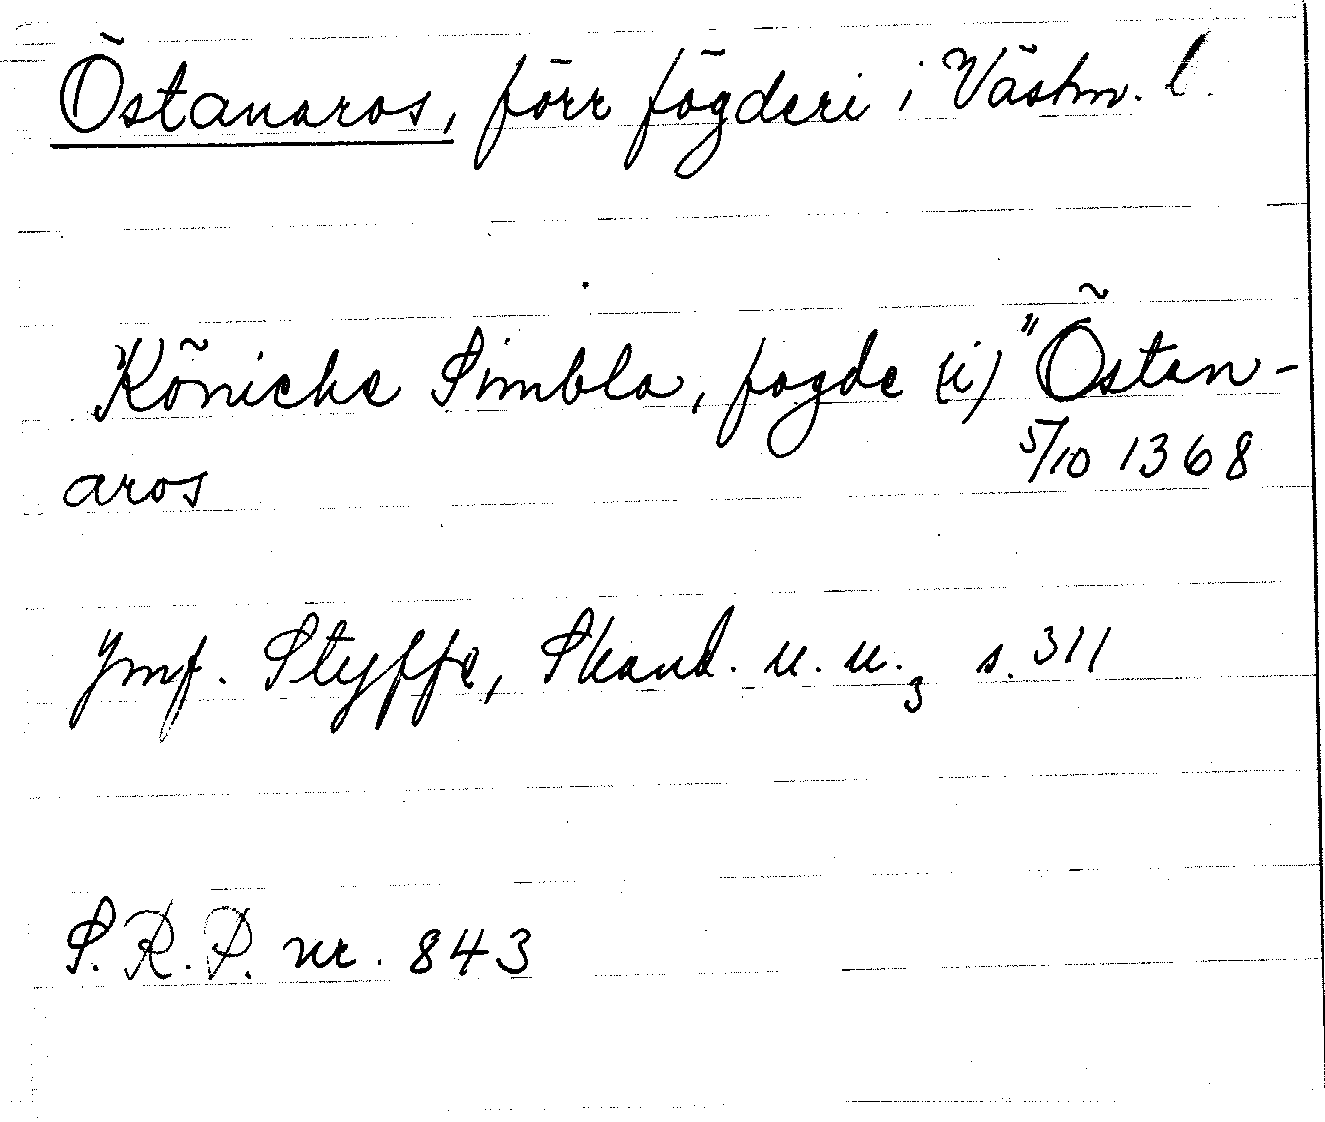 Östanaros, förr fögderi i Västm. l.
Könicke Simbla, fogde (i) "Östan-
aros 5/10 1368
Jmf. Styffe, Skand. u. u.3 s. 311
S. R. P. nr. 843